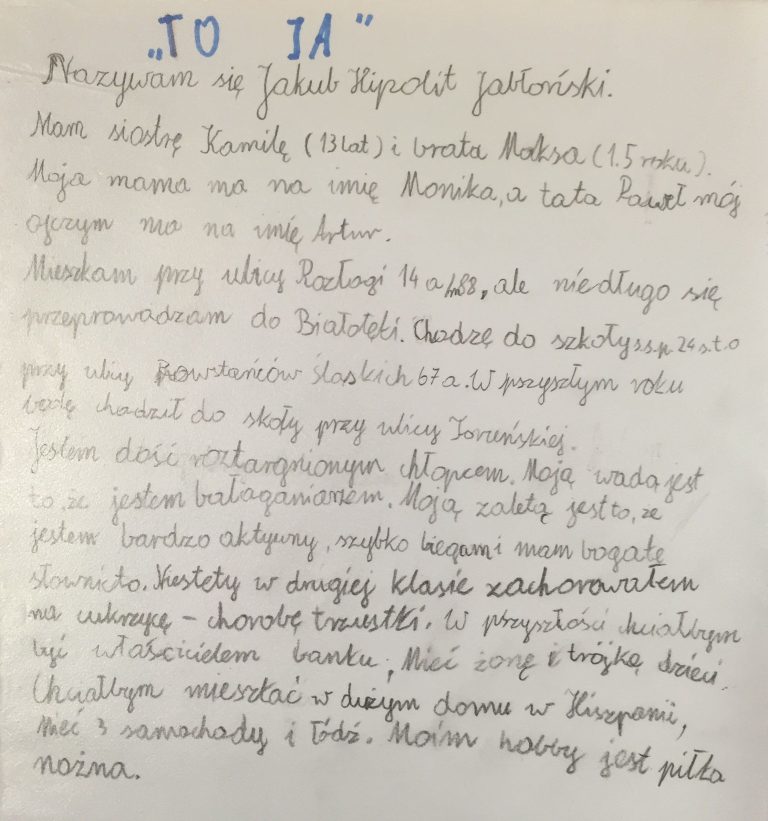 „TO JA"
Nazywam się Jakub Hipolit Jabłoński.
Mam siostrę Kamilę (13 lat) i brata Maksa (1.5 roku).
Moja mama ma na imię Monika, a tata Paweł mój
ojczym ma na imię Artur.
Mieszkam przy ulicy Rozłogi 14 a m88, ale niedługo się
przeprowadzam do Białołęki. Chodzę do szkoły s.s.p. 24 s.t.o
przy ulicy Powstańców śląskich 67 a. W pszyszłym roku
będę chodził do skoły przy ulicy Toruńskiej.
Jestem dość roztargnionym chłopcem. Moją wadą jest
to, że jestem bałaganiarzem. Moją zaletą jest to, że
jestem bardzo aktywny, szybko biegam i mam bogate
słownicto. Niestety w drugiej klasie zachorowałem
na cukrzycę – chorobę trzustki. W przyszłości chciałbym
być właścicielem banku, Mieć żonę i trójkę dzieci.
Chciałbym mieszkać w dużym domu w Hiszpanii,
Mieć 3 samochody i łódź. Moim hobby jest piłka
nożna.